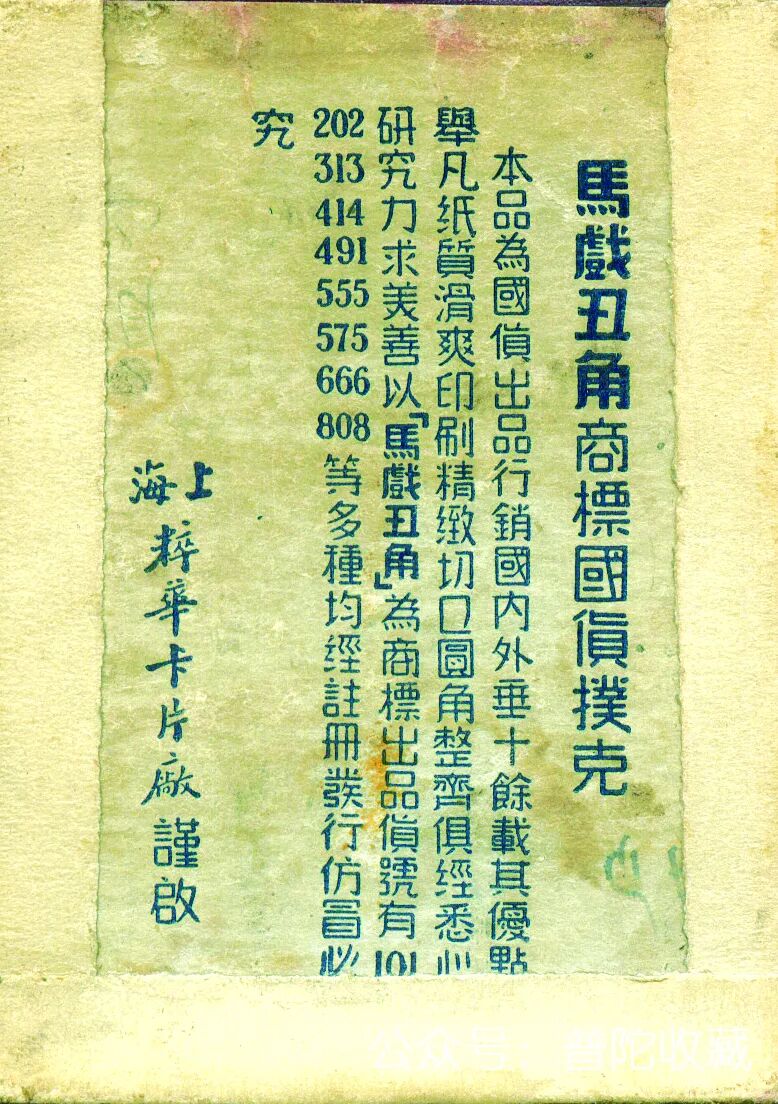 馬戲丑角商標國貨撲克
本品為國貨出品行銷國內外垂十餘載其優點
舉凡纸質滑爽印刷精緻切口圓角整齊俱經悉心
研究力求美善以「馬戲丑角」為商標出品貨號有101
202 313 414 491 555 575 666 808等多種均經註冊發行仿冒必
究
上海粹華卡片廠謹啟
公众号：普陀收藏